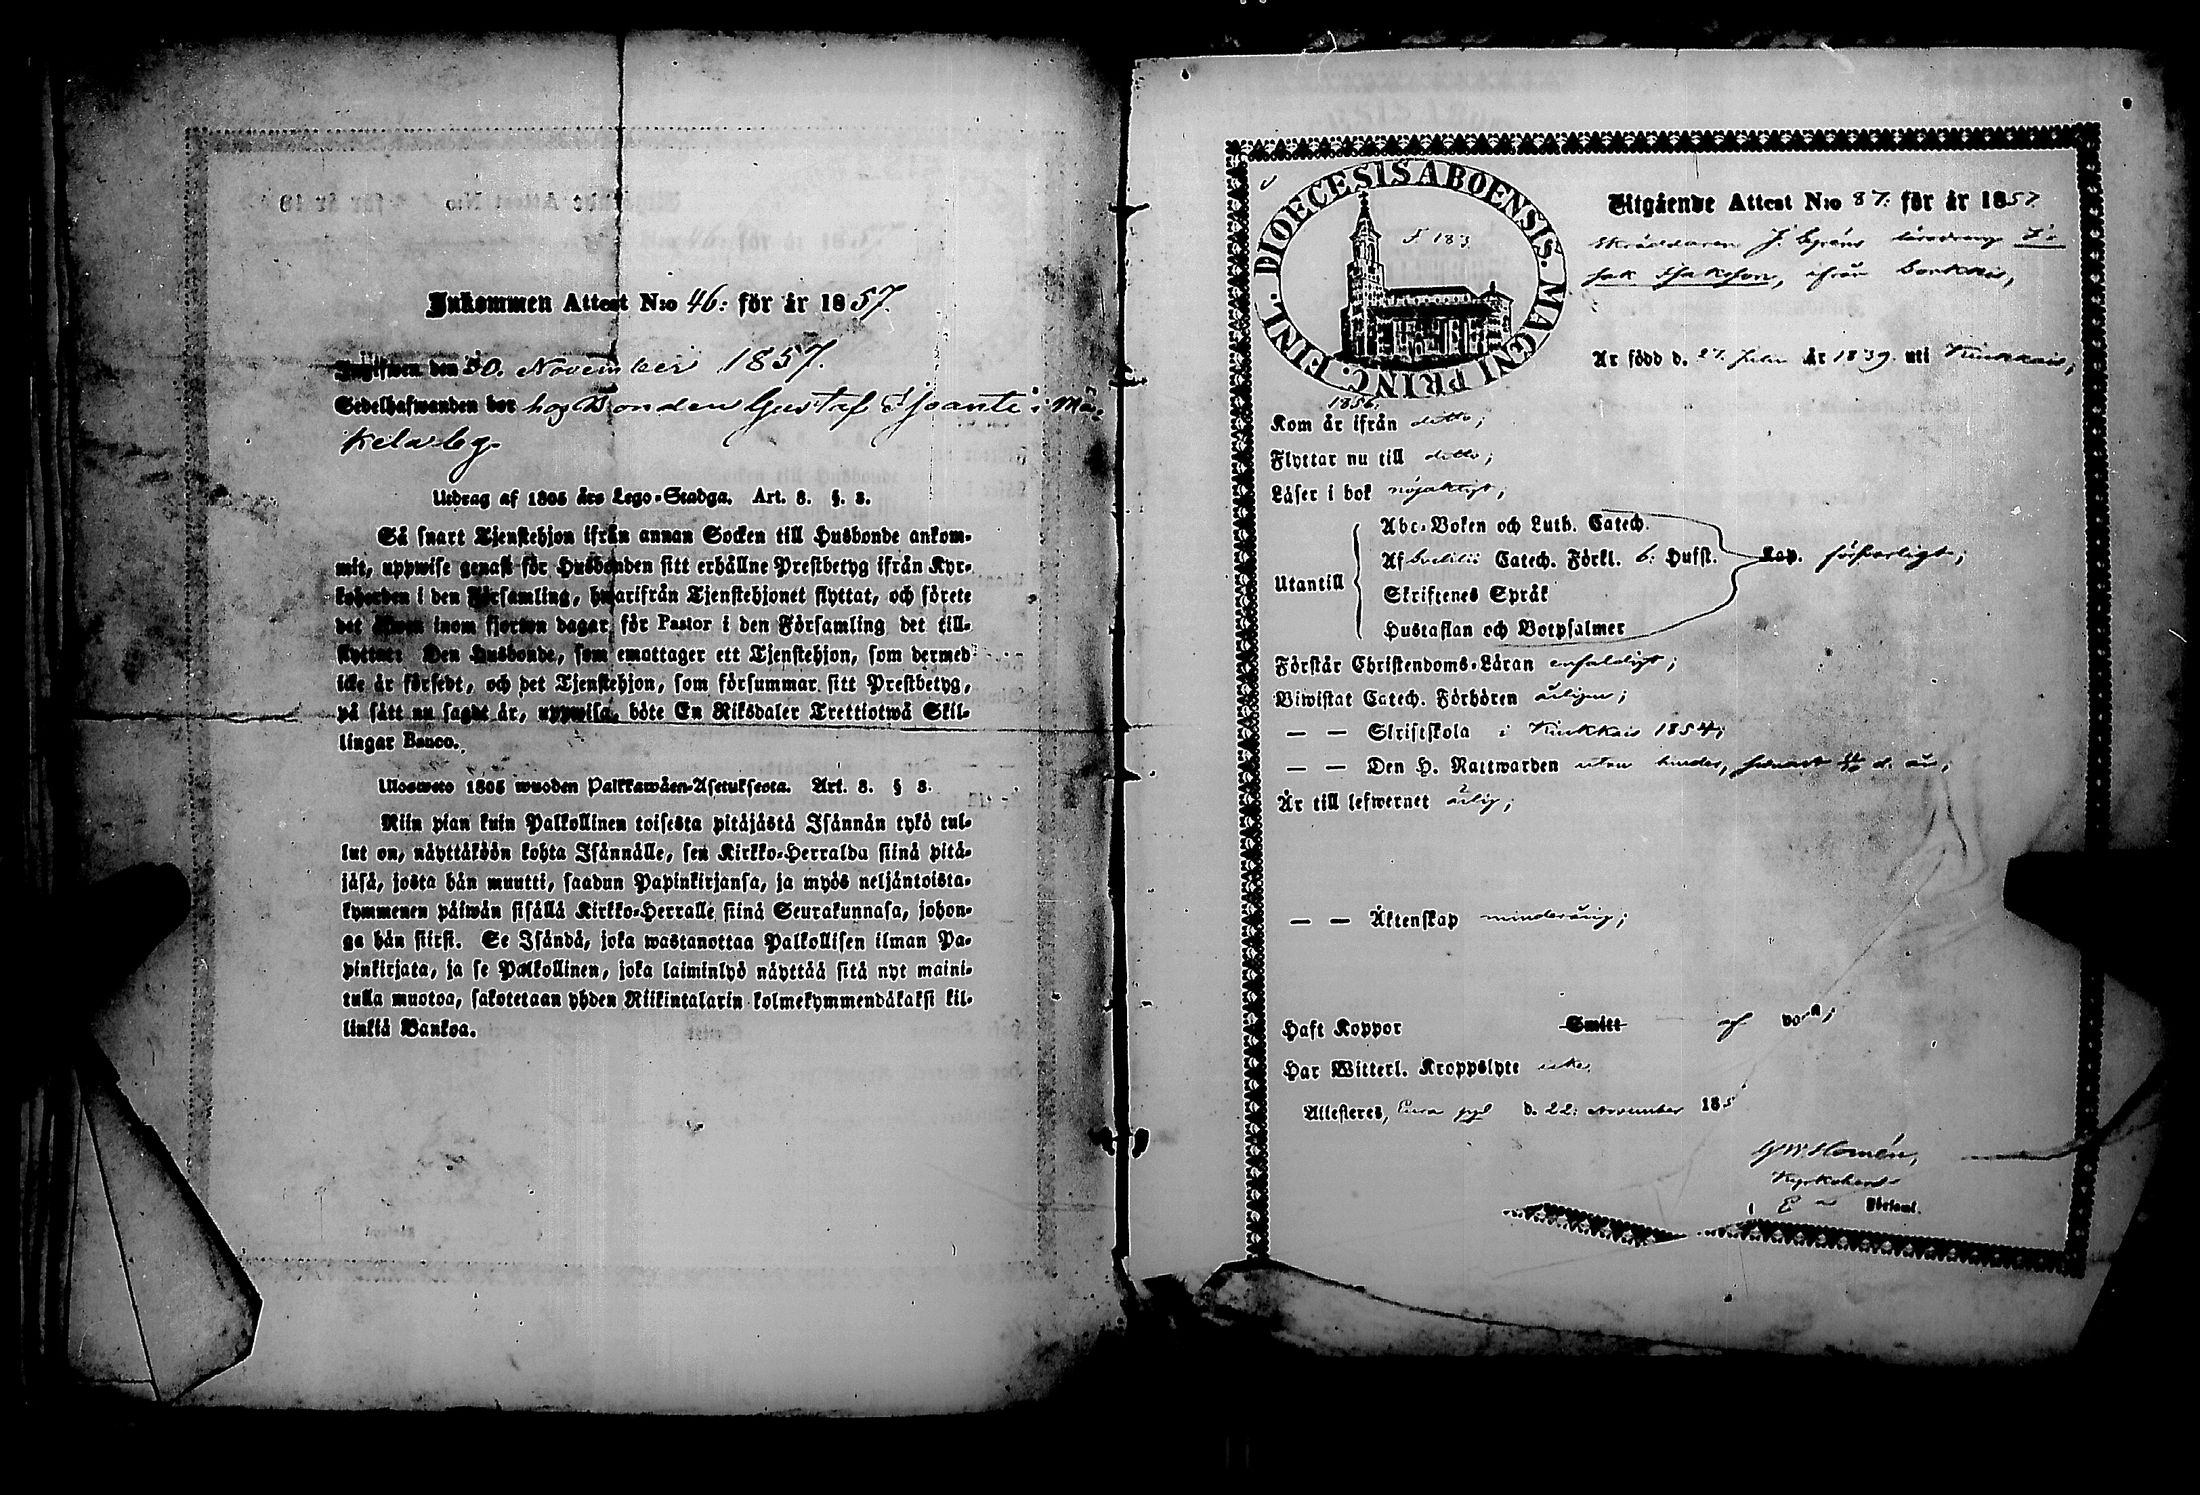 Inkommen Attest N:o 46: för år 1857.
Ingifwen den 30. November 1857.
Sedelhafwanden bor hos Bonden Gustaf Sjoante i Mä-
kelä by.
Utdrag af 1805 års Lego-Stadga. Art. 3. §. 3.
Så snart Tjenstehjon ifrån annan Socken till Husbonde ankom-
mit, uppwise genast för Husbonden sitt erhållne Prestbetyg ifrån Kyr-
koherden i den Församling, hwarifrån Tjenstehjonet flyttat, och förete
det äfwen inom fjorton dagar för Pastor i den Församling det till-
flyttat: Den Husbonde, som emottager ett Tjenstehjon, som dermed
icke är försedt, och det Tjenstehjon, som försummar sitt Prestbetyg,
på sätt nu sagdt är, uppwisa, böte En Riksdaler Trettiotwå Skil-
lingar Banco.
Ulosweto 1805 wuoden Palkkawäen-Asetuksesta. Art. 3. § 3.
Niin pian kuin Palkollinen toisesta pitäjästä Isännän tykö tul-
lut on, näyttäköön kohta Isännälle, sen Kirkko-Herralda siinä pitä-
jäsä, josta hän muutti, saadun Papinkirjansa, ja myös neljäntoista-
kymmenen päiwän sisällä Kirkko-Herralle siinä Seurakunnasa, johon-
ga hän siirsi. Se Isändä, joka wastanottaa Palkollisen ilman Pa-
pinkirjata, ja se Palkollinen, joka laiminlyö näyttää sitä nyt maini-
tulla muotoa, sakotetaan yhden Riikintalarin kolmekymmendäkaksi kil-
linkiä Bankoa.
FINL. DIOECESIS ABOENSIS. MAGNI PRINC.
Utgående Attest N:o 87: för år 1857
Skräddaren J. lärodreng
sak Isaksson, ifrån
Är född d. 27. år 1839 uti Kiukkais,
1856;
Kom år ifrån ditto;
Flyttar nu till ditto;
Läser i bok nöjaktigt;
Utantill
Abc-Boken och Luth. Catech.
Af Svebilii Catech. Förkl. b: Husst. Kap. försvarligt;
Skriftenes Språk
Hustaflan och Botpsalmer
Förstår Christendoms-Läran enfaldigt;
Biwistat Catech. Förhören årligen;
— — Skriftskola i Kiukkais 1854;
— — Den H. Nattwarden utan hinder, senast d. år;
Är till lefwernet ärlig;
— — Äktenskap minderårig;
Haft Koppor Smitt af vacc;
Har Witterl. Kroppslyte icke.
Attesteres, Eura d. 22: November 185
Homén,
Kyrkoherde
E Församl.